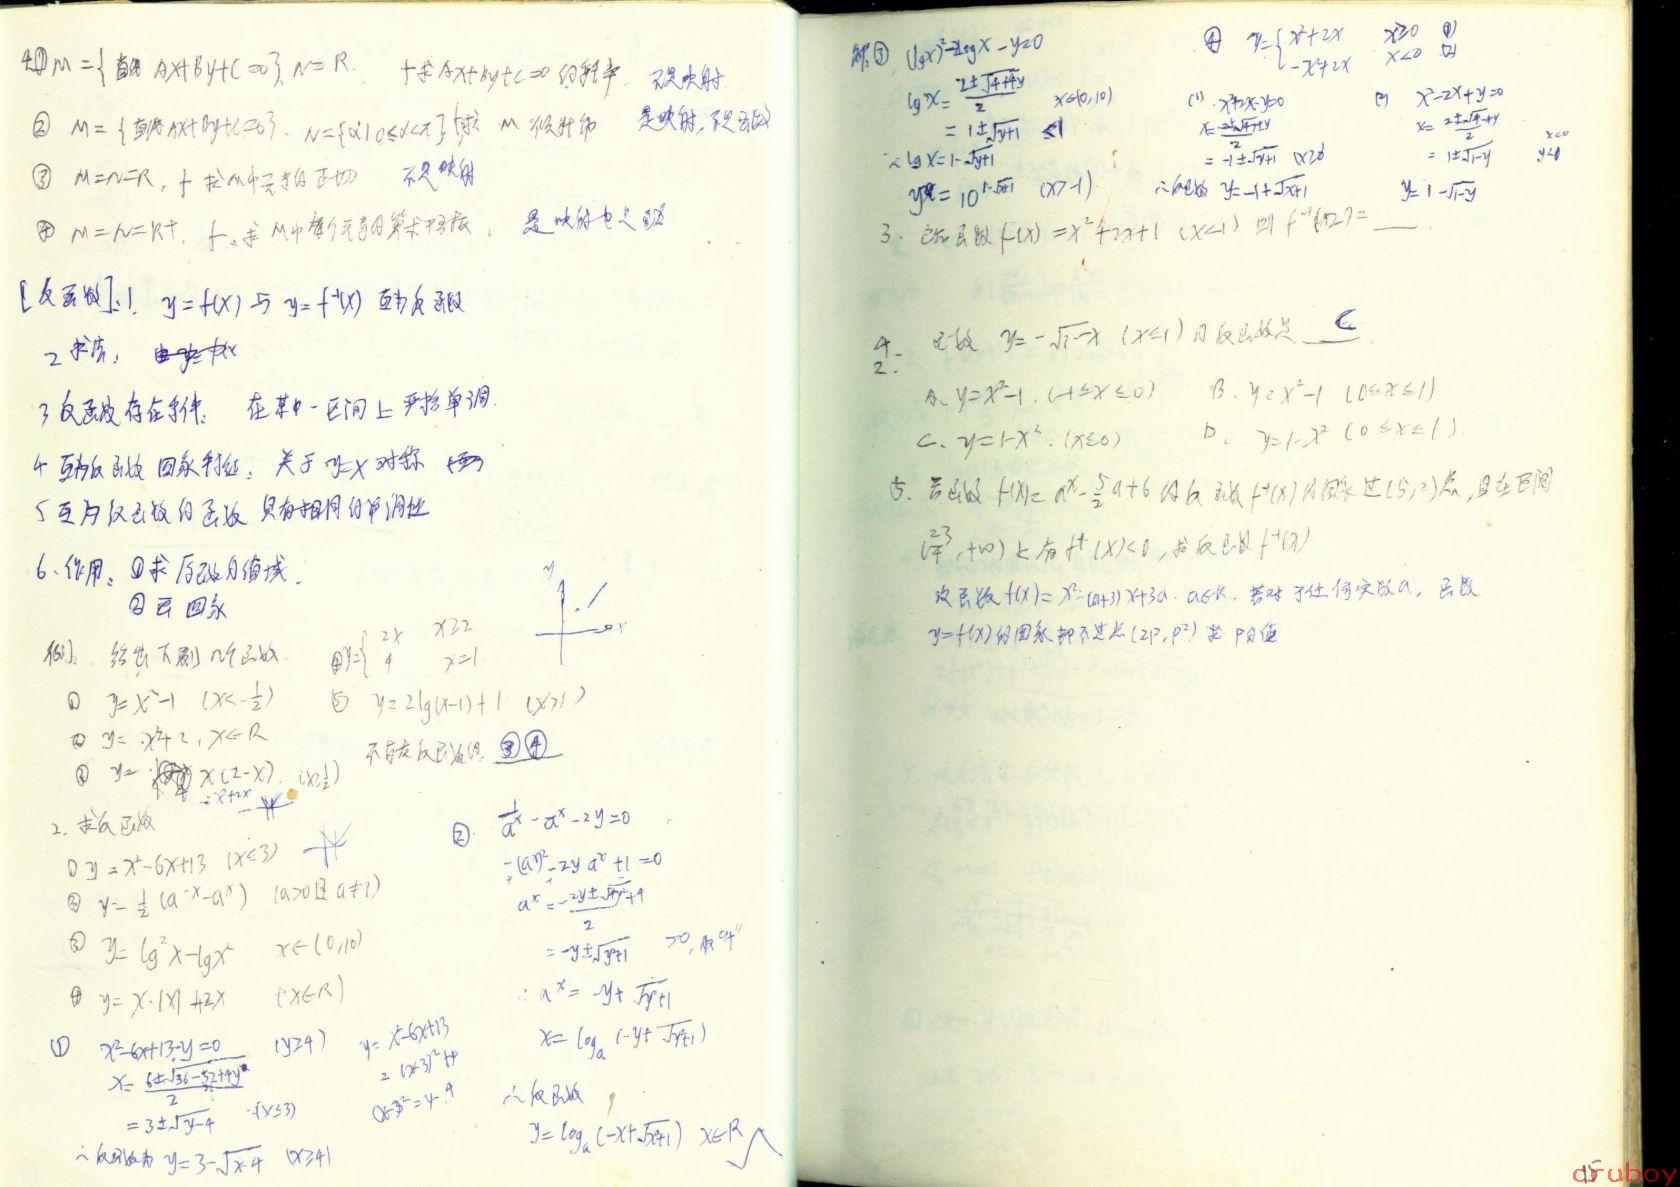 4.① M={直线Ax+By+C=0}, N=R. f求Ax+By+C=0的斜率. 不是映射
② M={直线Ax+By+C=0}. N={α|0≤α<π} f求M 倾斜角 是映射,不是函数
③ M=N=R, f 求M中元素的正切 不是映射
④ M=N=R+, f:求M中每个元素的算术平方根. 是映射也是函数
[反函数]:1. y=f(x)与y=f⁻¹(x) 互为反函数
2 求法:
3 反函数存在条件: 在某中一区间上严格单调.
4 互为反函数图象特征: 关于y=x对称
5 互为反函数的函数具有相同的单调性
6. 作用: ①求原函数的值域.
②画图象
y
x
例1. 给出下列几个函数.
① y=x²-1 (x<-1/2)
② y=x²+2, x∈R
③ y= x(2-x) (x≥1/2)
-x²+2x
④y={ 2x x≥2
4 x=1
⑤ y=2lg(x-1)+1 (x>1)
不存在反函数的 ③④
2. 求反函数
① y=x²-6x+13 (x≤3)
② y=1/2(a⁻ˣ-aˣ) (a>0且a≠1)
③ y=lg²x-lgx² x∈(0,10)
④ y=x·|x|+2x (x∈R)
① x²-6x+13-y=0 (y≥4)
x=(6±√36-52+4y)/2
=3±√y-4 (x≤3)
∴反函数为 y=3-√x-4 (x≥4)
y=x²-6x+13
=(x-3)²+4
(x-3)²=y-4
② 1/aˣ-aˣ-2y=0
-(aˣ)²-2yaˣ+1=0
aˣ=(-2y±√4y²+4)/2
=-y±√y²+1 >0, 取"+"
∴aˣ=-y+√y²+1
x=logₐ(-y+√y²+1)
∴反函数
y=logₐ(-x+√x²+1) x∈R
解:③ (lgx)²-2lgx-y=0
lgx=(2±√4+4y)/2 x∈(0,10)
=1±√y+1 ≤1
∴lgx=1-√y+1
y=10^(1-√x+1) (x>-1)
④ y={x²+2x x≥0 (1)
-x²+2x x<0 (2)
(1) x²+2x-y=0
x=(-2±√4+4y)/2
=-1±√y+1 x≥0
∴反函数 y=-1+√x+1
(2) x²-2x+y=0
x=(2±√4-4y)/2
=1±√1-y x<0 y<0
y=1-√1-y
3. 已知函数f(x)=x²+2x+1 (x<1)
4. 函数y=-√1-x (x≤1)的反函数是 C
2.
A. y=x²-1. (-1≤x≤0) B. y=x²-1 (0≤x≤1)
C. y=1-x². (x≤0) D. y=1-x² (0≤x≤1).
5. 若函数f(x)=aˣ-5/2a+6的反函数f⁻¹(x)的图象过(5,2)点,且在区间
(23/4,+∞)上有f⁻¹(x)<0,求反函数f⁻¹(x)
次函数f(x)=x²-(a+3)x+3a. a∈R. 若对于任何实数a, 函数
y=f(x)的图象都不过点(2p,p²) 求p的值
15
cruboy